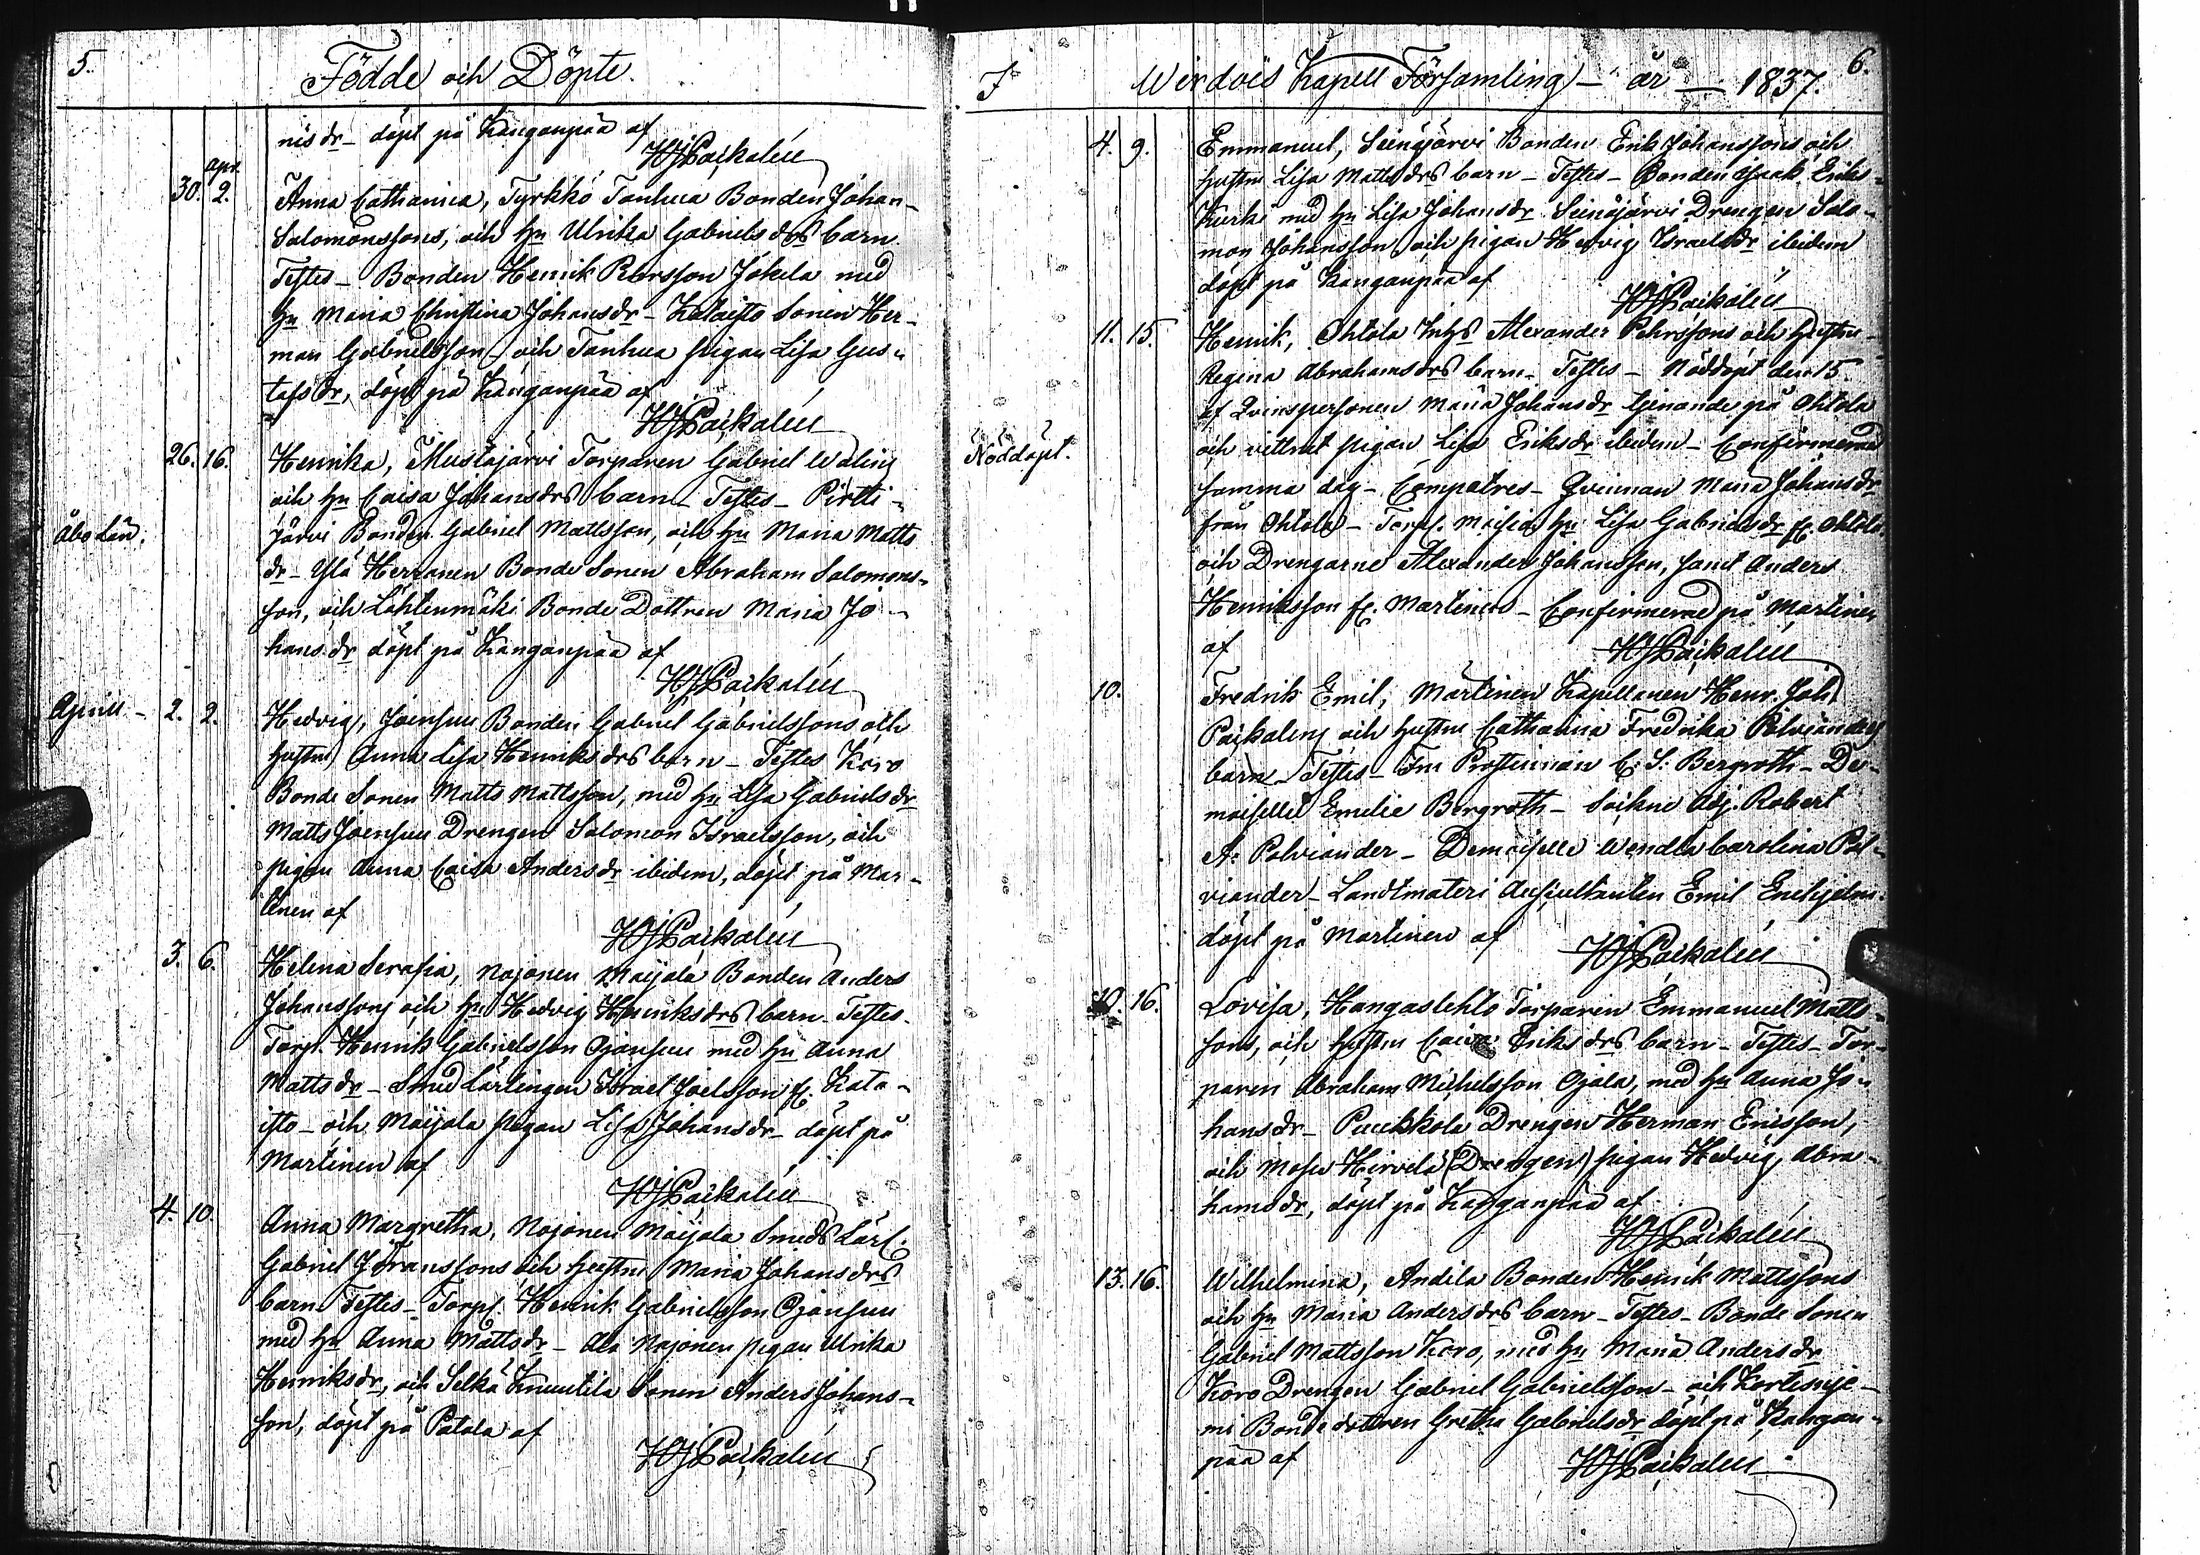 5.
Födde och Döpte.
nis dr - döpt på Kanganpää af
HJPaikalén
apr.
30. 2. Anna Catharina, Tyrkkö Tanhua Bonden Johan
Salomonssons, och Hu Ulrika Gabrielsdrs barn.
Testes - Bonden Henrik Persson Jokela med
Hu Maria Christina Johansdr - Kataisto Sonen Her-
man Gabrielsson, och Tanhua pigan Lisa Gus-
tafsdr, döpt på Kanganpää af
HJPaikalén
26. 16. Henrika, Mustajärvi Torparen Gabriel Walins
och Hu Caisa Johansdrs barn - Testes - Pirtti-
Åbo Län. järvi Bonden Gabriel Mattsson, och Hu Maria Matts
dr - Ylä Herranen Bonde Sonen Abraham Salomons-
son, och Löhtenmäki Bonde Dottren Maria Jo-
hansdr döpt på Kanganpää af
HJPaikalén
Aprill - 2. 2. Hedvig, Joensuu Bonden Gabriel Gabrielssons och
hustru Anna Lisa Henriksdrs barn - Testes Koro
Bonde Sonen Matts Mattsson, med Hu Lisa Gabrielsdr
Matts Joensuu Drengen Salomon Israelsson, och
pigan Anna Caisa Andersdr ibidem, döpt på Mar-
tinen af
HJPaikalén
3. 6. Helena Serafia, Nojonen Maijala Bonden Anders
Johanssons och Hu Hedvig Henriksdrs barn - Testes -
Torp. Henrik Gabrielsson Ojansuu med Hu Anna
Mattsdr - Smed Lärlingen Israel Joelsson fr. Kata-
isto - och Maijala pigan Lisa Johansdr - döpt på
Martinen af
HJPaikalén
4. 10. Anna Margretha, Nojonen Maijala Smeds Lärl.
Gabriel Johanssons och hustru Maria Johansdrs
barn Testes - Torp. Henrik Gabrielsson Ojansuu
med Hu Anna Mattsdr - Ala Nojonen pigan Ulrika
Henriksdr, och Selkä Knuutila Sonen Anders Johans-
son, döpt på Patala af
HJPaikalén
6.
I Wirdois Kapell Församling - år - 1837.
4. 9. Emmanuel, Seinäjärvi Bonden Erik Johanssons och
hustru Lisa Mattsdrs barn - Testes - Bonden Isaak Eriks-
Kurki med Hu Lisa Johansdr Seinäjärvi Drengen Salo-
mon Johansson, och pigan Hedvig Israelsdr ibidem
döpt på Kanganpää af
HJPaikalén
11. 15. Henrik, Ohtola Inhs Alexander Pehrssons och hustru
Regina Abrahamsdrs barn - Testes - Nöddöpt den 15.
af Qvinspersonen Maria Johansdr tjenande på Ohtola
Nöddöpt. och vittnet pigan Lisa Eriksdr ibidem - Confirmerad
samma dag - Compatres - Qvinnan Maria Johansdr
från Ohtola - Torp. Hu Lisa Gabrielsdr fr. Ohtola
och Drengarne Alexander Johansson, samt Anders
Henriksson fr. Martinen - Confirmerad på Martinen
af
HJPaikalén
10. Fredrik Emil, Martinen Kapellanen Henr. Joh.
Paikaléns och hustru Catharina Fredrika Polvianders
barn - Testes - Fru Prostinnan C. S. Bergroth - De-
moiselle Emelie Bergroth - Sockne Adj. Robert
A. Polviander - Demoiselle Wendla Carolina Pol-
viander - Landtmäteri Auscultanten Emil Enehjelm.
döpt på Martinen af
HJPaikalén
16. Lovisa, Hangaslehto Torparen Emmanuel Matts-
sons, och hustru Caisa Eriksdrs barn - Testes - Tor-
paren Abraham Michelsson Ojala, med Hu Anna Jo-
hansdr - Puukkola Drengen Herman Ericsson,
och Moses Hirvelä (Drengen) pigan Hedvig Abra-
hamsdr, döpt på Kanganpää af
HJPaikalén
13. 16. Wilhelmina, Andila Bonden Henrik Mattssons
och Hu Maria Andersdrs barn - Testes - Bonde Sonen
Gabriel Mattsson Koro, med Hu Maria Andersdr
Koro Drengen Gabriel Gabrielsson - och Kortesnie-
mi Bonde dottren Gretha Gabrielsdr döpt på Kangan-
pää af
HJPaikalén